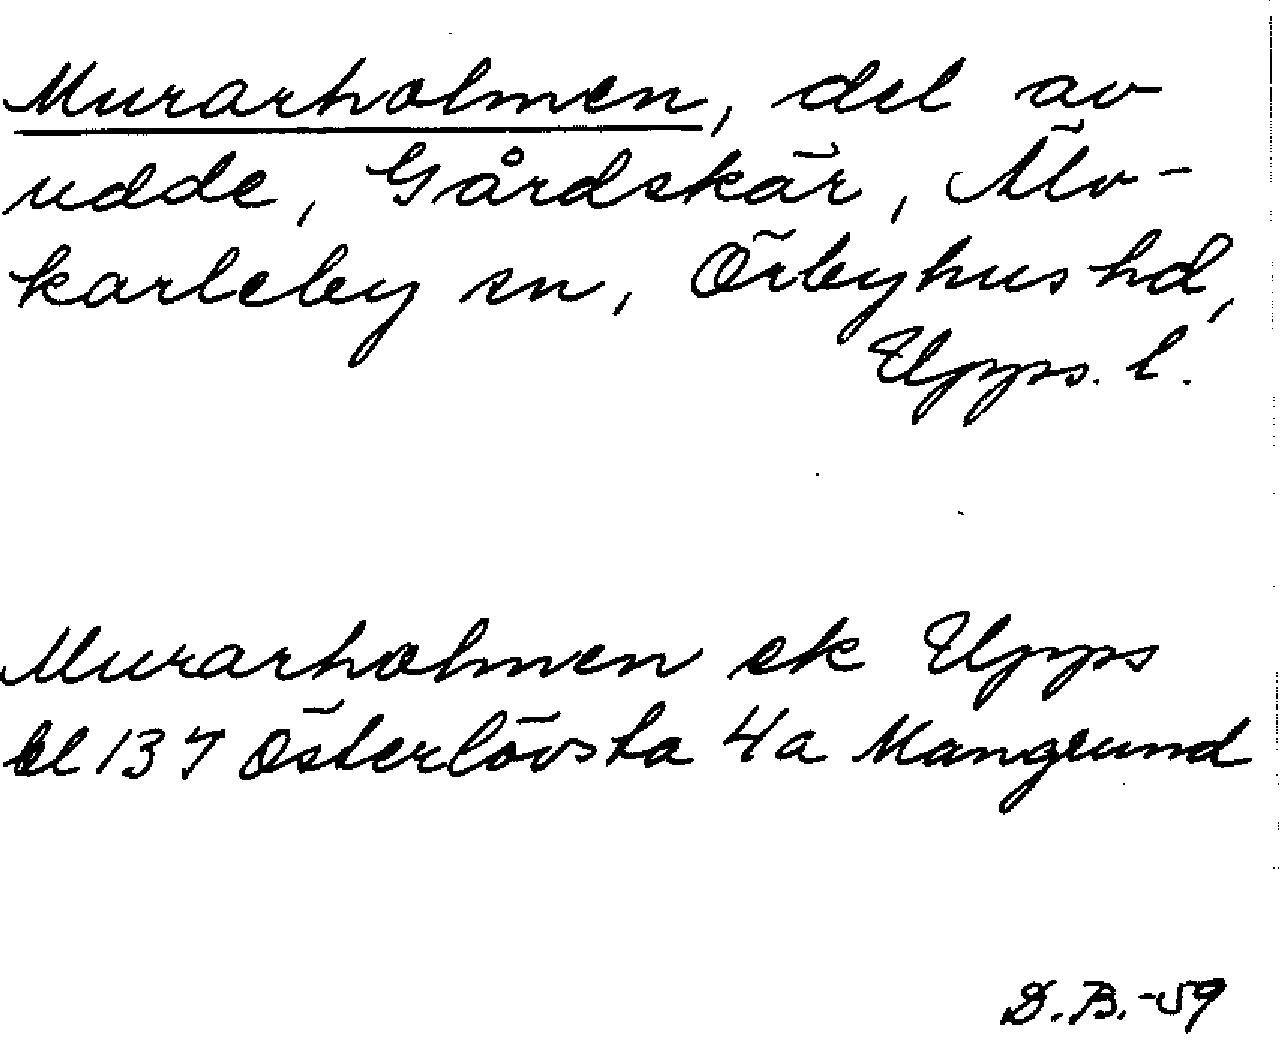 Murarholmen, del av
udde, Gårdskär, Älv-
karleby sn, Örbyhus hd,
Upps. l.
Murarholmen ek Upps
bl 137 Österlövsta 4a Mangrund
D.B.-59